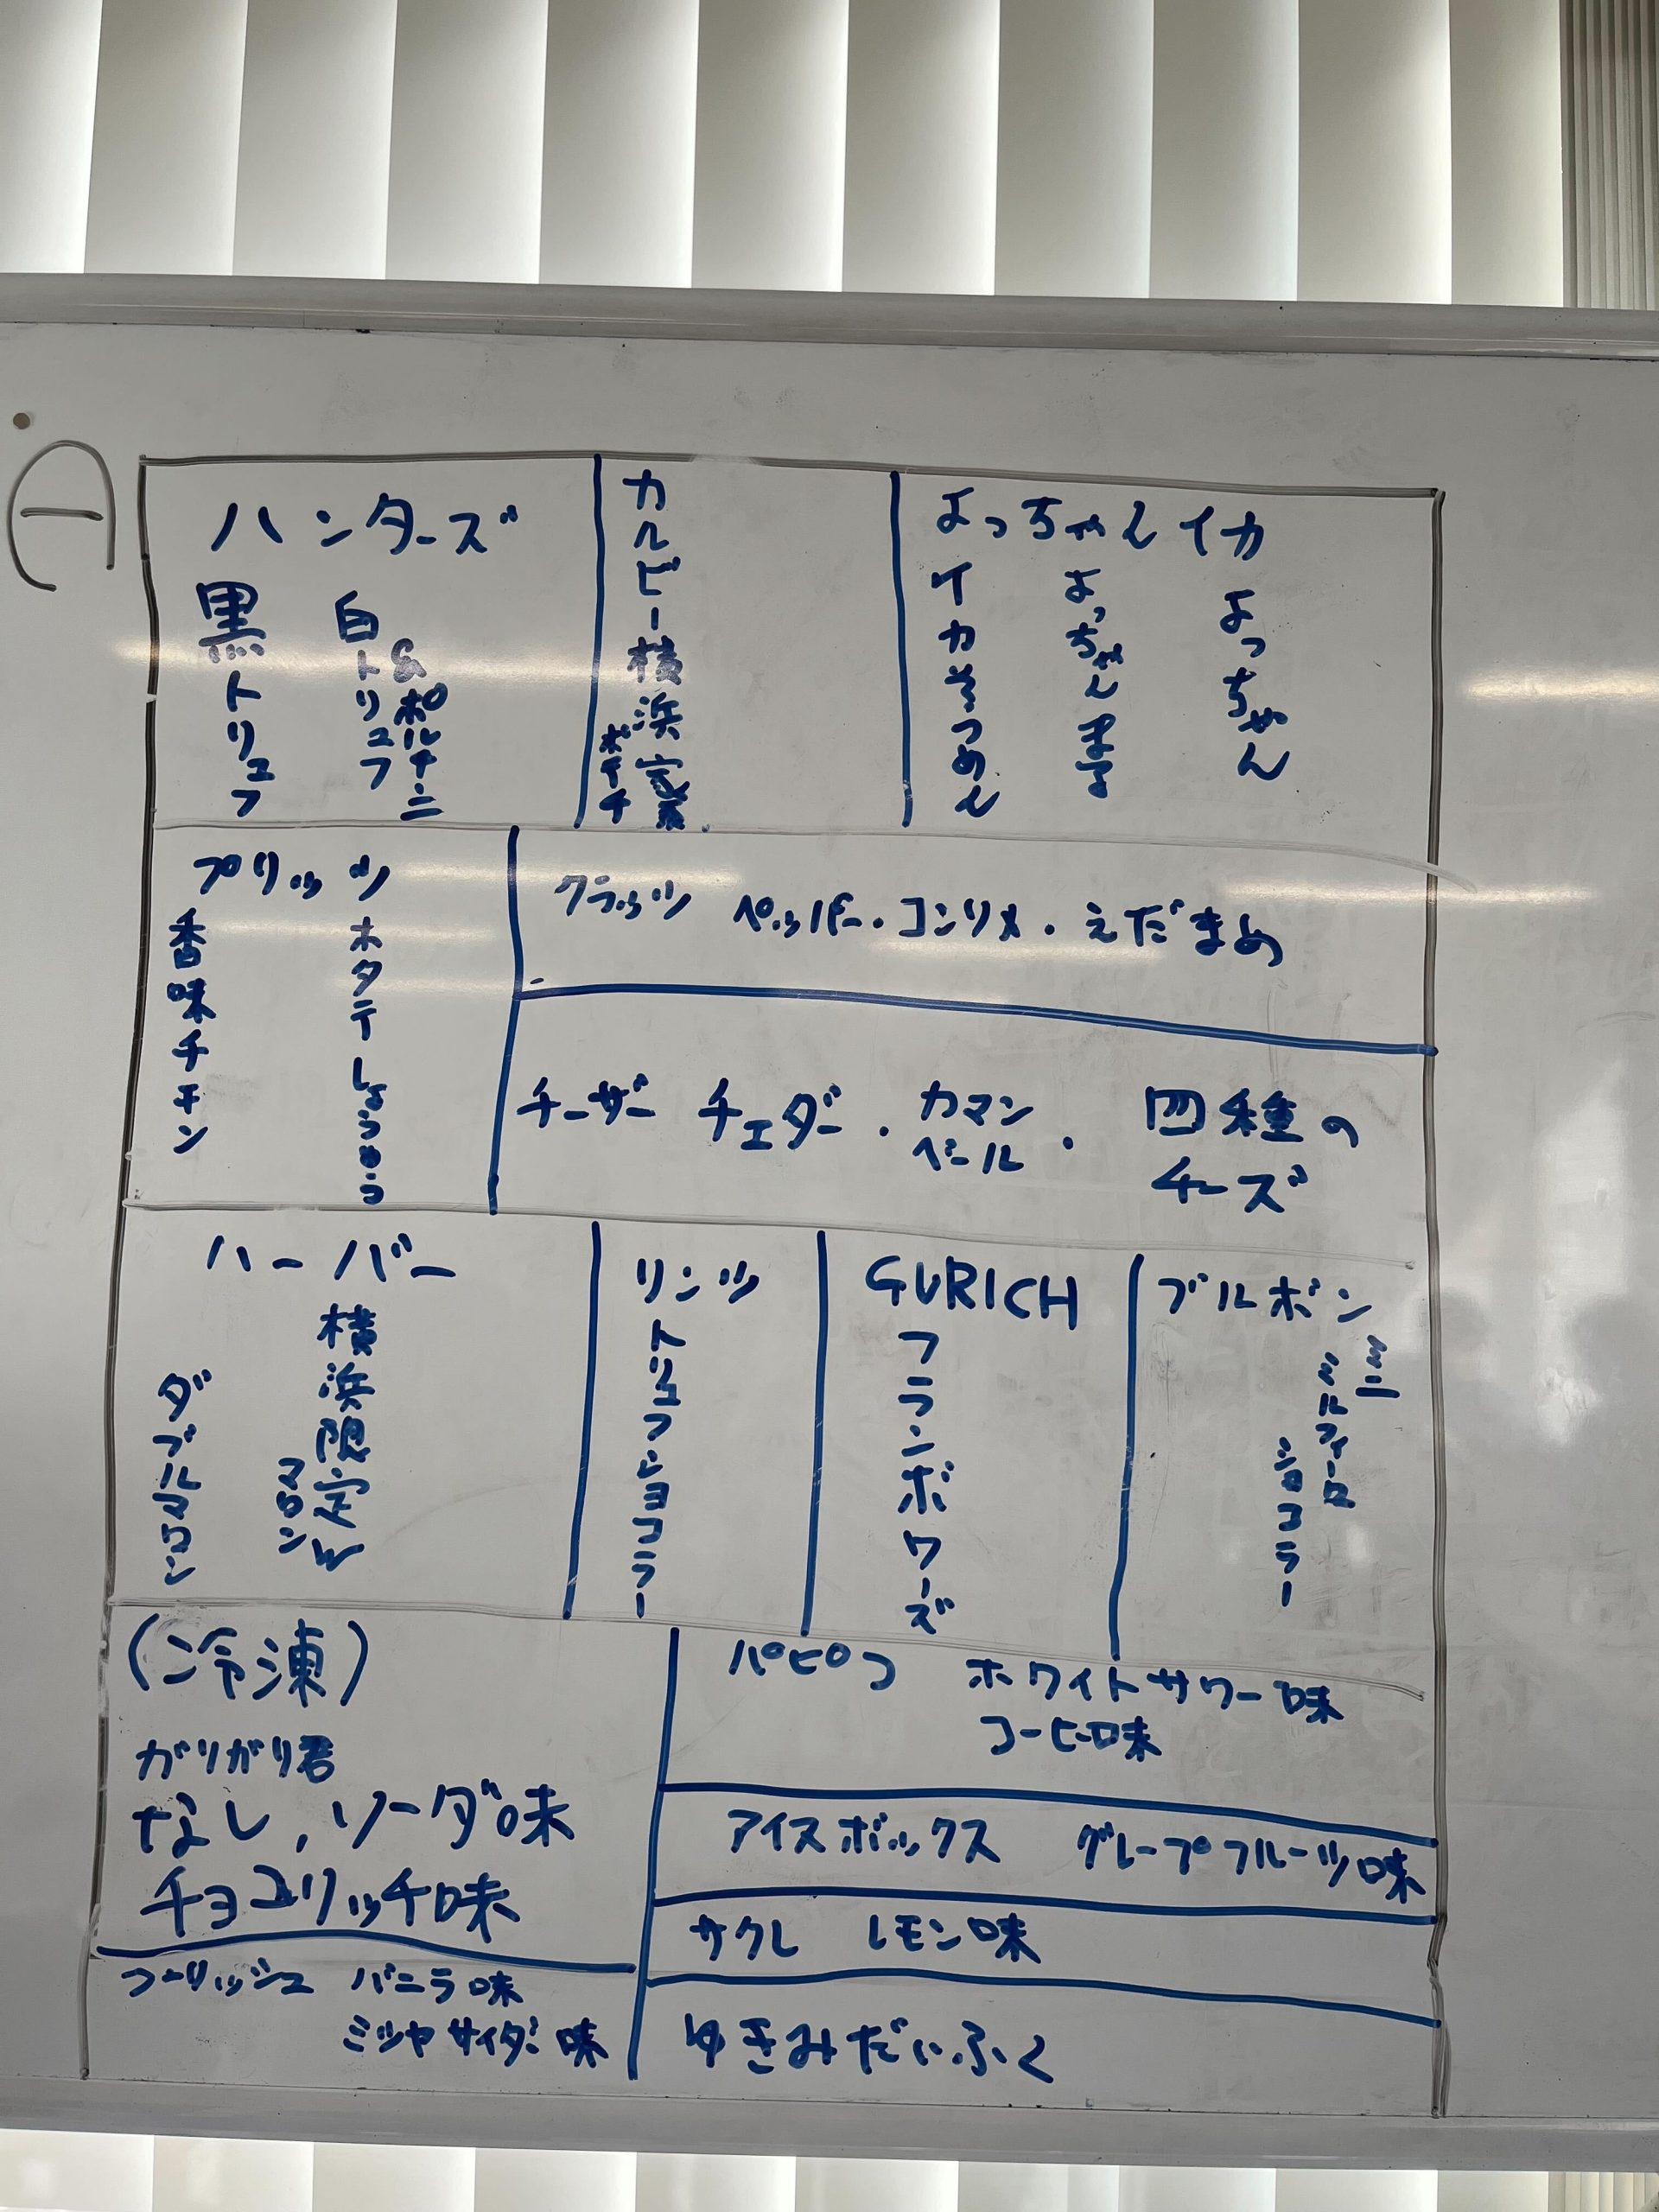 (一)
ハンターズ
黒トリュフ
白トリュフ
&ポルチーニ
カルビー横浜家系
ポテチ
よっちゃんイカ
イカそうめん
よっちゃん
よっちゃん
プリッツ
香味チキン
ホタテしょうゆ
クラッツ ペッパー・コンソメ・えだまめ
チーザー チェダー・カマンベール・四種の
チーズ
ハーバー
ダブルマロン
横浜限定W
マロン
リンツ
トリュフショコラー
GURICH
フランボワーズ
ブルボン
ミニ
ミルフィーユ
ショコラー
(冷凍)
ガリガリ君
なし,ソーダ味
チョコリッチ味
フーリッシュ バニラ味
ミツヤサイダー味
パピコ ホワイトサワー味
コーヒー味
アイスボックス グレープフルーツ味
サクレ レモン味
ゆきみだいふく